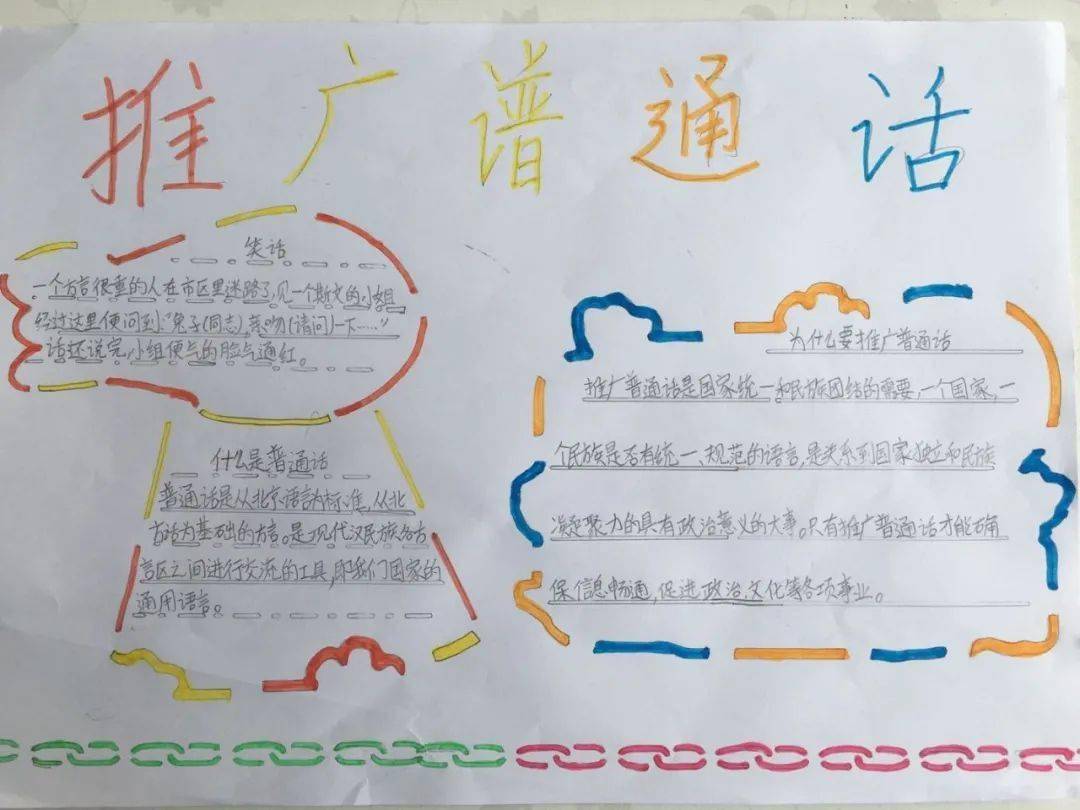 推广普通话
笑话
一个方言很重的人在市区里迷路了,见一个斯文的小姐
经过这里便问到:"兔子(同志),亲吻(请问)一下……"
话还说完,小组便气的脸气通红。
什么是普通话
普通话是从北京语言为标准,从北
方话为基础的方言。是现代汉民族各方
言区之间进行交流的工具,即我们国家的
通用语言。
为什么要推广普通话
推广普通话是国家统一和民族团结的需要,一个国家,一
个民族是否有统一、规范的语言,是关系到国家独立和民族
凝聚力的具有政治意义的大事。只有推广普通话才能确
保信息畅通,促进政治,文化等各项事业。